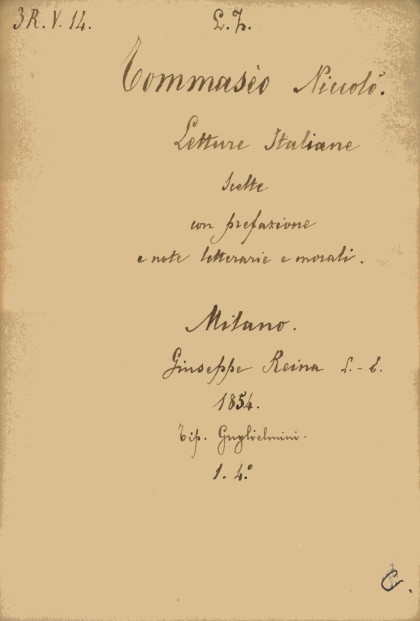 3R. V. 14. L. Th.
Tommasèo Niccolò.
Letture Italiane
scelte
con prefazione
e note letterarie e morali.
Milano.
Giuseppe Reina L.-E.
1854.
Tip. Guglielmini.
1. 4.º
C.